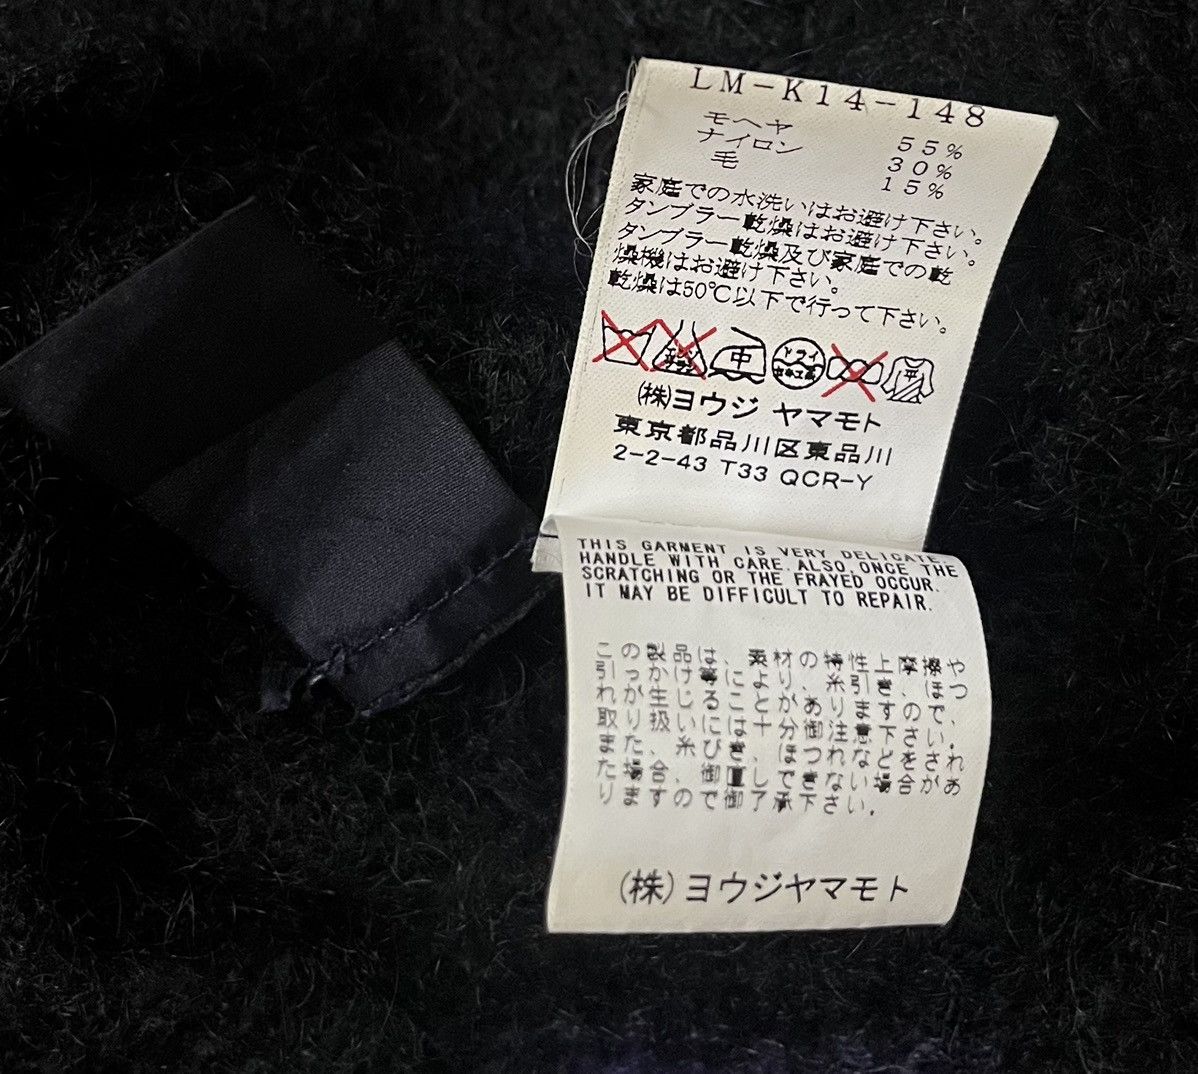 LM-K14-148
モヘヤ 55%
ナイロン 30%
毛 15%
家庭での水洗いはお避け下さい。
タンブラー乾燥はお避け下さい。
タンブラー乾燥及び家庭での乾
燥機はお避け下さい。
乾燥は50℃以下で行って下さい。
中 ドライ 平
(株)ヨウジ ヤマモト
東京都品川区東品川
2-2-43 T33 QCR-Y
THIS GARMENT IS VERY DELICATE
HANDLE WITH CARE.ALSO,ONCE THE
SCRATCHING OR THE FRAYED OCCUR.
IT MAY BE DIFFICULT TO REPAIR.
この製品は、素材の特性上摩擦や
引っかけ等により、糸引き、ほつ
れが生じることがありますので、
取り扱いには十分御注意下さい。
また、糸びき、ほつれなどをされ
た場合、御直しできない場合があ
りますので御了承下さい。
(株)ヨウジヤマモト